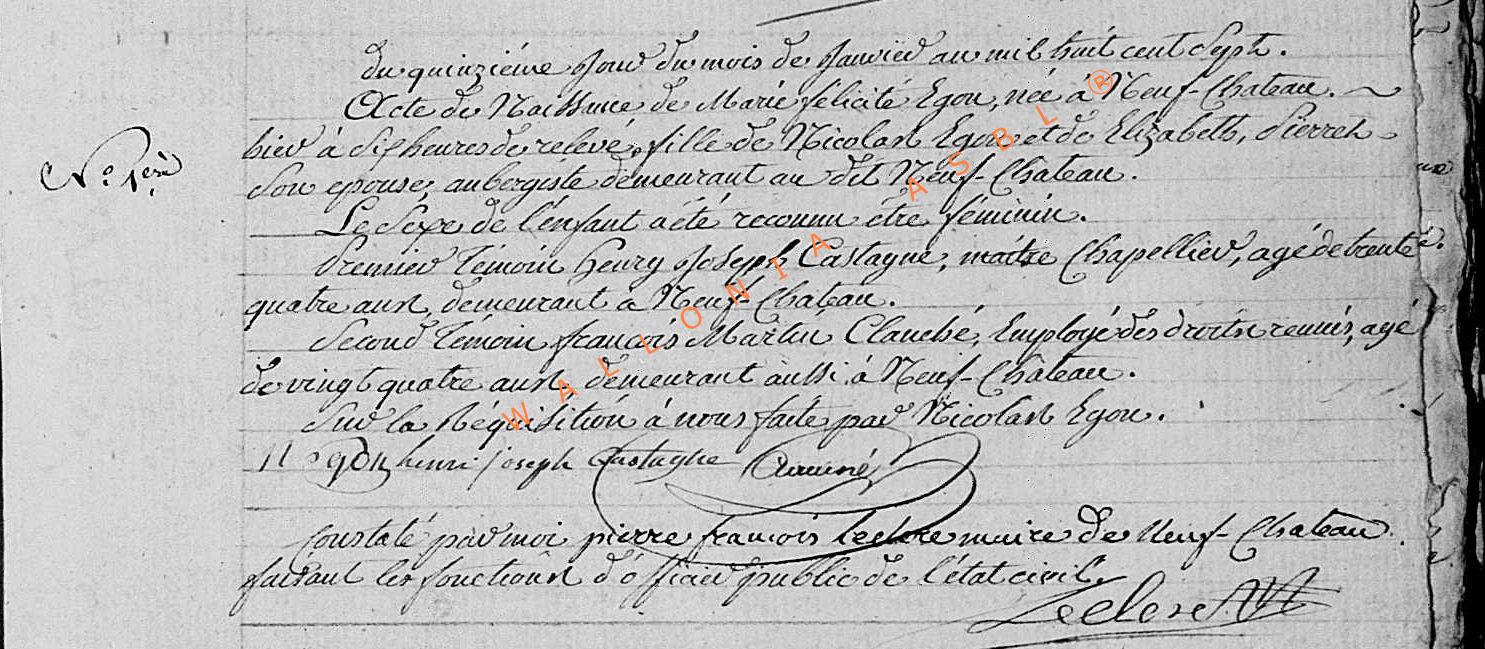 du quinziéme Jour du mois de Janvier an mil huit cent Sept.
Acte de Naissance de Marie félicité Egon, née à Neuf-Chateau.
hier à Six heures de relevé, fille de Nicolas Egon et de Elizabeth, Pierret
N.° 1.ere
Son epouse, aubergiste demeurant au dit Neuf-Chateau.
Le Sexe de l'enfant a été reconnu être féminin.
Premier Témoin henry Joseph Castagne, maitre Chapellier, agé de trente
quatre ans, demeurant à Neuf-Chateau.
Second Témoin françois Martin, Employé des droits reunis, agé
de vingt quatre ans, demeurant aussi à Neuf-Chateau.
Sur la Réquisition à nous faite par Nicolas Egon.
N Egon henri joseph Castagne
Constaté par moi pierre francois leclere maire de Neuf-Chateau
faisant les fonctions d'officier public de l'état civil.
Leclere
WALLONIA ASBL ®